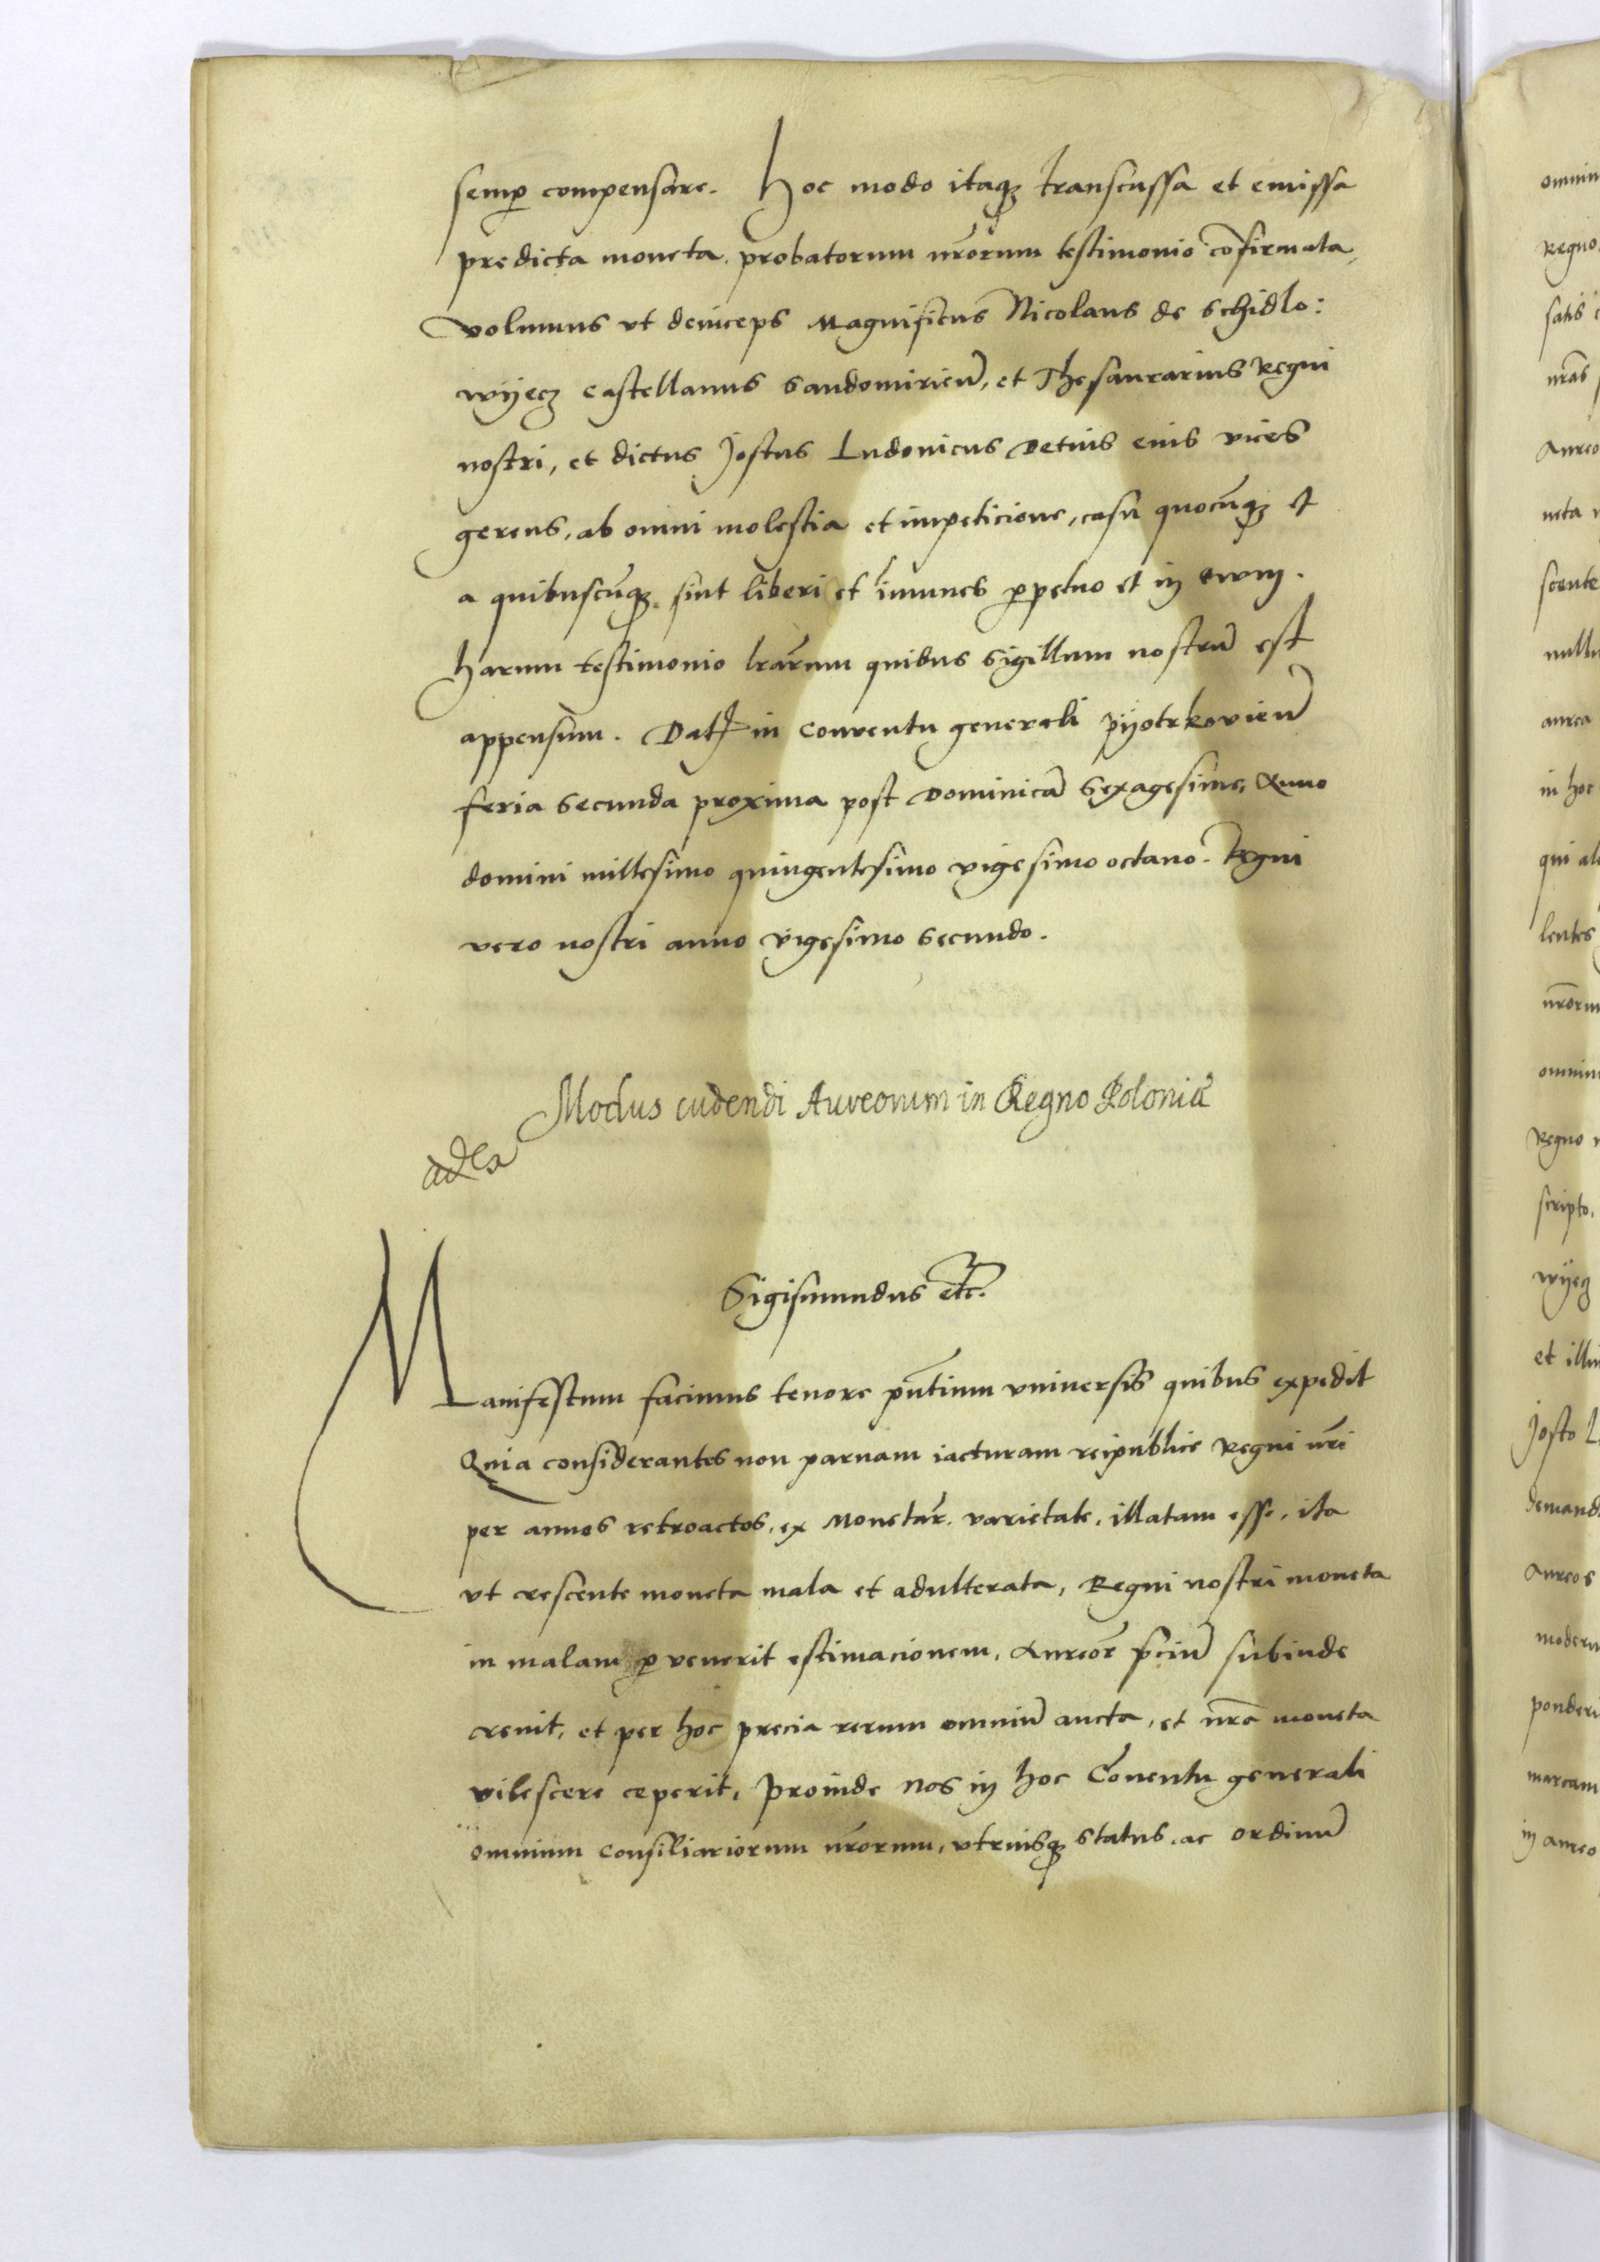 semp compensare. Hoc modo itaq transcussa et emissa
predicta moneta, probatorum nrorum testimonio cofirmata,
volumus vt deinceps Magnificus Nicolaus de Schidlo:
wyecz Castellanus Sandomirien, et Thesaurarius Regni
nostri, et dictus Jostus Ludovicus Detius eius vices
gerens, ab omni molestia et impeticione, casu quocuq et
a quibuscuq sint liberi et imunes ppetuo et in evum.
harum testimonio lrarum quibus Sigillum nostru est
appensum. Dat in Conventu generali Pyotrkovien
feria Secunda proxima post Dominica Sexagesime, Anno
domini millesimo quingentesimo vigesimo octavo. Regni
vero nostri anno vigesimo Secundo.
Modus cudendi Aureorum in Regno Poloniæ
Sigismundus etc.
Manifestum facimus tenore pntium vniversis quibus expedit
Quia considerantes non parvam iacturam reipublice Regni nri
per annos retroactos, ex Monetar varietate, illatam esse, ita
vt crescente moneta mala et adulterata, Regni nostri moneta
in malam pvenerit estimacionem, Aureor pciu subinde
crevit, et per hoc precia rerum omniu aucta, et nra moneta
vilescere ceperit, Proinde Nos in hoc Coventu generali
omnium Consiliariorum nrorum, vtriusq status, ac ordinu
omnium
Regno
satis
nras
Aureo
neta
scente
nullu
aurea
in hoc
qui al
lentes
nrorum
omnium
Regno
scripto,
wyecz
et illu
Josto L
demand
Aureos
modern
ponderi
marcam
in aureo